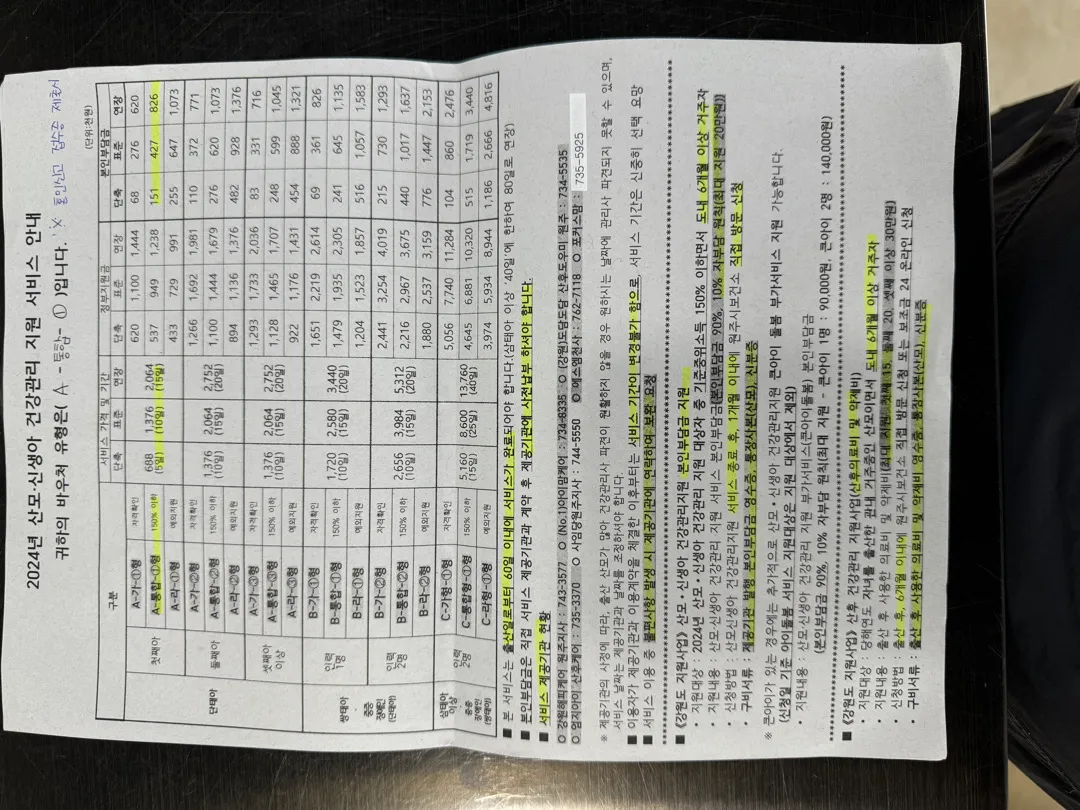 2024년 산모·신생아 건강관리 지원 서비스 안내
귀하의 바우처 유형은( A - 통합- ① )입니다.
(단위:천원)
구분 서비스 가격 및 기간 정부지원금 본인부담금
단축 표준 연장 단축 표준 연장 단축 표준 연장
단태아 첫째아 A-가-①형 자격확인 688 (5일) 1,376 (10일) 2,064 (15일) 620 1,100 1,444 68 276 620
A-통합-①형 150% 이하 537 949 1,238 151 427 826
A-라-①형 예외지원 433 729 991 255 647 1,073
둘째아 A-가-②형 자격확인 1,376 (10일) 2,064 (15일) 2,752 (20일) 1,266 1,692 1,981 110 372 771
A-통합-②형 150% 이하 1,100 1,444 1,679 276 620 1,073
A-라-②형 예외지원 894 1,136 1,376 482 928 1,376
셋째아 이상 A-가-③형 자격확인 1,376 (10일) 2,064 (15일) 2,752 (20일) 1,293 1,733 2,036 83 331 716
A-통합-③형 150% 이하 1,128 1,465 1,707 248 599 1,045
A-라-③형 예외지원 922 1,176 1,431 454 888 1,321
쌍태아 인력 1명 B-가-①형 자격확인 1,720 (10일) 2,580 (15일) 3,440 (20일) 1,651 2,219 2,614 69 361 826
B-통합-①형 150% 이하 1,479 1,935 2,305 241 645 1,135
B-라-①형 예외지원 1,204 1,523 1,857 516 1,057 1,583
중증 장애인 (단태아) 인력 2명 B-가-②형 자격확인 2,656 (10일) 3,984 (15일) 5,312 (20일) 2,441 3,254 4,019 215 730 1,293
B-통합-②형 150% 이하 2,216 2,967 3,675 440 1,017 1,637
B-라-②형 예외지원 1,880 2,537 3,159 776 1,447 2,153
삼태아 이상 중증 장애인 (쌍태아) 인력 2명 C-가형-①형 자격확인 5,160 (15일) 8,600 (25일) 13,760 (40일) 5,056 7,740 11,284 104 860 2,476
C-통합형-①형 150% 이하 4,645 6,881 10,320 515 1,719 3,440
C-라형-①형 예외지원 3,974 5,934 8,944 1,186 2,666 4,816
■ 본 서비스는 출산일로부터 60일 이내에 서비스가 완료되어야 합니다.(삼태아 이상 '40일'에 한하여 80일로 연장)
■ 본인부담금은 직접 서비스 제공기관과 계약 후 제공기관에 사전납부 하셔야 합니다.
■ 서비스 제공기관 현황
○ 강원해피케어 원주지사 : 743-3577 ○ (No.1)아이맘케어 : 734-8335 ○ (강원)도담도담 산후도우미 원주 : 734-5535
○ 엄지아이 산후케어 : 735-3370 ○ 사임당원주지사 : 744-5550 ○ 에스엠천사 : 762-7118 ○ 포커스맘 : 735-5925
※ 제공기관의 사정에 따라, 출산 산모가 많아 건강관리사 파견이 원활하지 않을 경우 원하시는 날짜에 관리사 파견되지 못할 수 있으며,
서비스 날짜는 제공기관과 날짜를 조정하셔야 합니다.
■ 이용자가 제공기관과 이용계약을 체결한 이후부터는 서비스 기간이 변경불가 함으로, 서비스 기간은 신중히 선택 요망
■ 서비스 이용 중 불편사항 발생 시 제공기관에 연락하여 보완 요청
■ 《강원도 지원사업》 산모·신생아 건강관리지원 본인부담금 지원
• 지원대상 : 2024년 산모·신생아 건강관리 지원 대상자 중 기준중위소득 150% 이하면서 도내 6개월 이상 거주자
• 지원내용 : 산모신생아 건강관리 지원 서비스 본인부담금(본인부담금 90%, 10% 자부담 원칙(최대 지원 20만원))
• 신청방법 : 산모신생아 건강관리지원 서비스 종료 후, 1개월 이내에 원주시보건소 직접 방문 신청
• 구비서류 : 제공기관 발행 본인부담금 영수증, 통장사본(산모), 신분증
※ 큰아이가 있는 경우에는 추가적으로 산모·신생아 건강관리지원 큰아이 돌봄 부가서비스 지원 가능합니다.
(신청일 기준 아이돌봄 서비스 지원대상은 지원 대상에서 제외)
• 지원내용 : 산모신생아 건강관리 지원 부가서비스(큰아이돌봄) 본인부담금
(본인부담금 90%, 10% 자부담 원칙(최대 지원 - 큰아이 1명 : 90,000원, 큰아이 2명 : 140,000원)
■ 《강원도 지원사업》 산후 건강관리 지원사업(산후의료비 및 약제비)
• 지원대상 : 당해연도 자녀를 출산한 관내 거주중인 산모이면서 도내 6개월 이상 거주자
• 지원내용 : 출산 후 사용한 의료비 및 약제비(최대 지원 첫째 15, 둘째 20, 셋째 이상 30만원)
• 신청방법 : 출산 후, 6개월 이내에 원주시보건소 직접 방문 신청 또는 보조금 24 온라인 신청
구비서류 : 출산 후 사용한 의료비 및 약제비 영수증, 통장사본(산모), 신분증